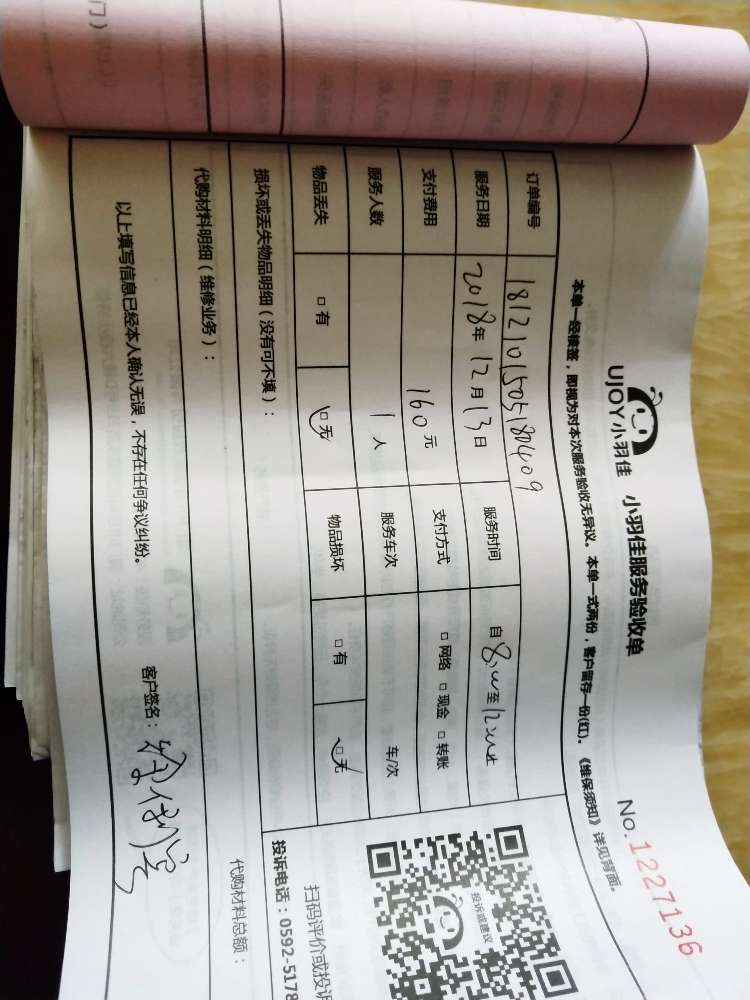 UJOY小羽佳 小羽佳服务验收单
No.1227136
本单一经核签，即视为对本次服务验收无异议。本单一式两份，客户留存一份(红)。《维保须知》详见背面。
订单编号 1812101505180409
服务日期 2018年12月13日 服务时间 自8:00至12:00止
支付费用 160元 支付方式 □网络 □现金 □转账
服务人数 1人 服务车次 车/次
物品丢失 □有 □无 物品损坏 □有 □无
损坏或丢失物品明细（没有可不填）：
代购材料明细（维修业务）： 代购材料总额：
以上填写信息已经本人确认无误，不存在任何争议纠纷。 客户签名：
投诉或建议
扫码评价或投诉
投诉电话：0592-5178